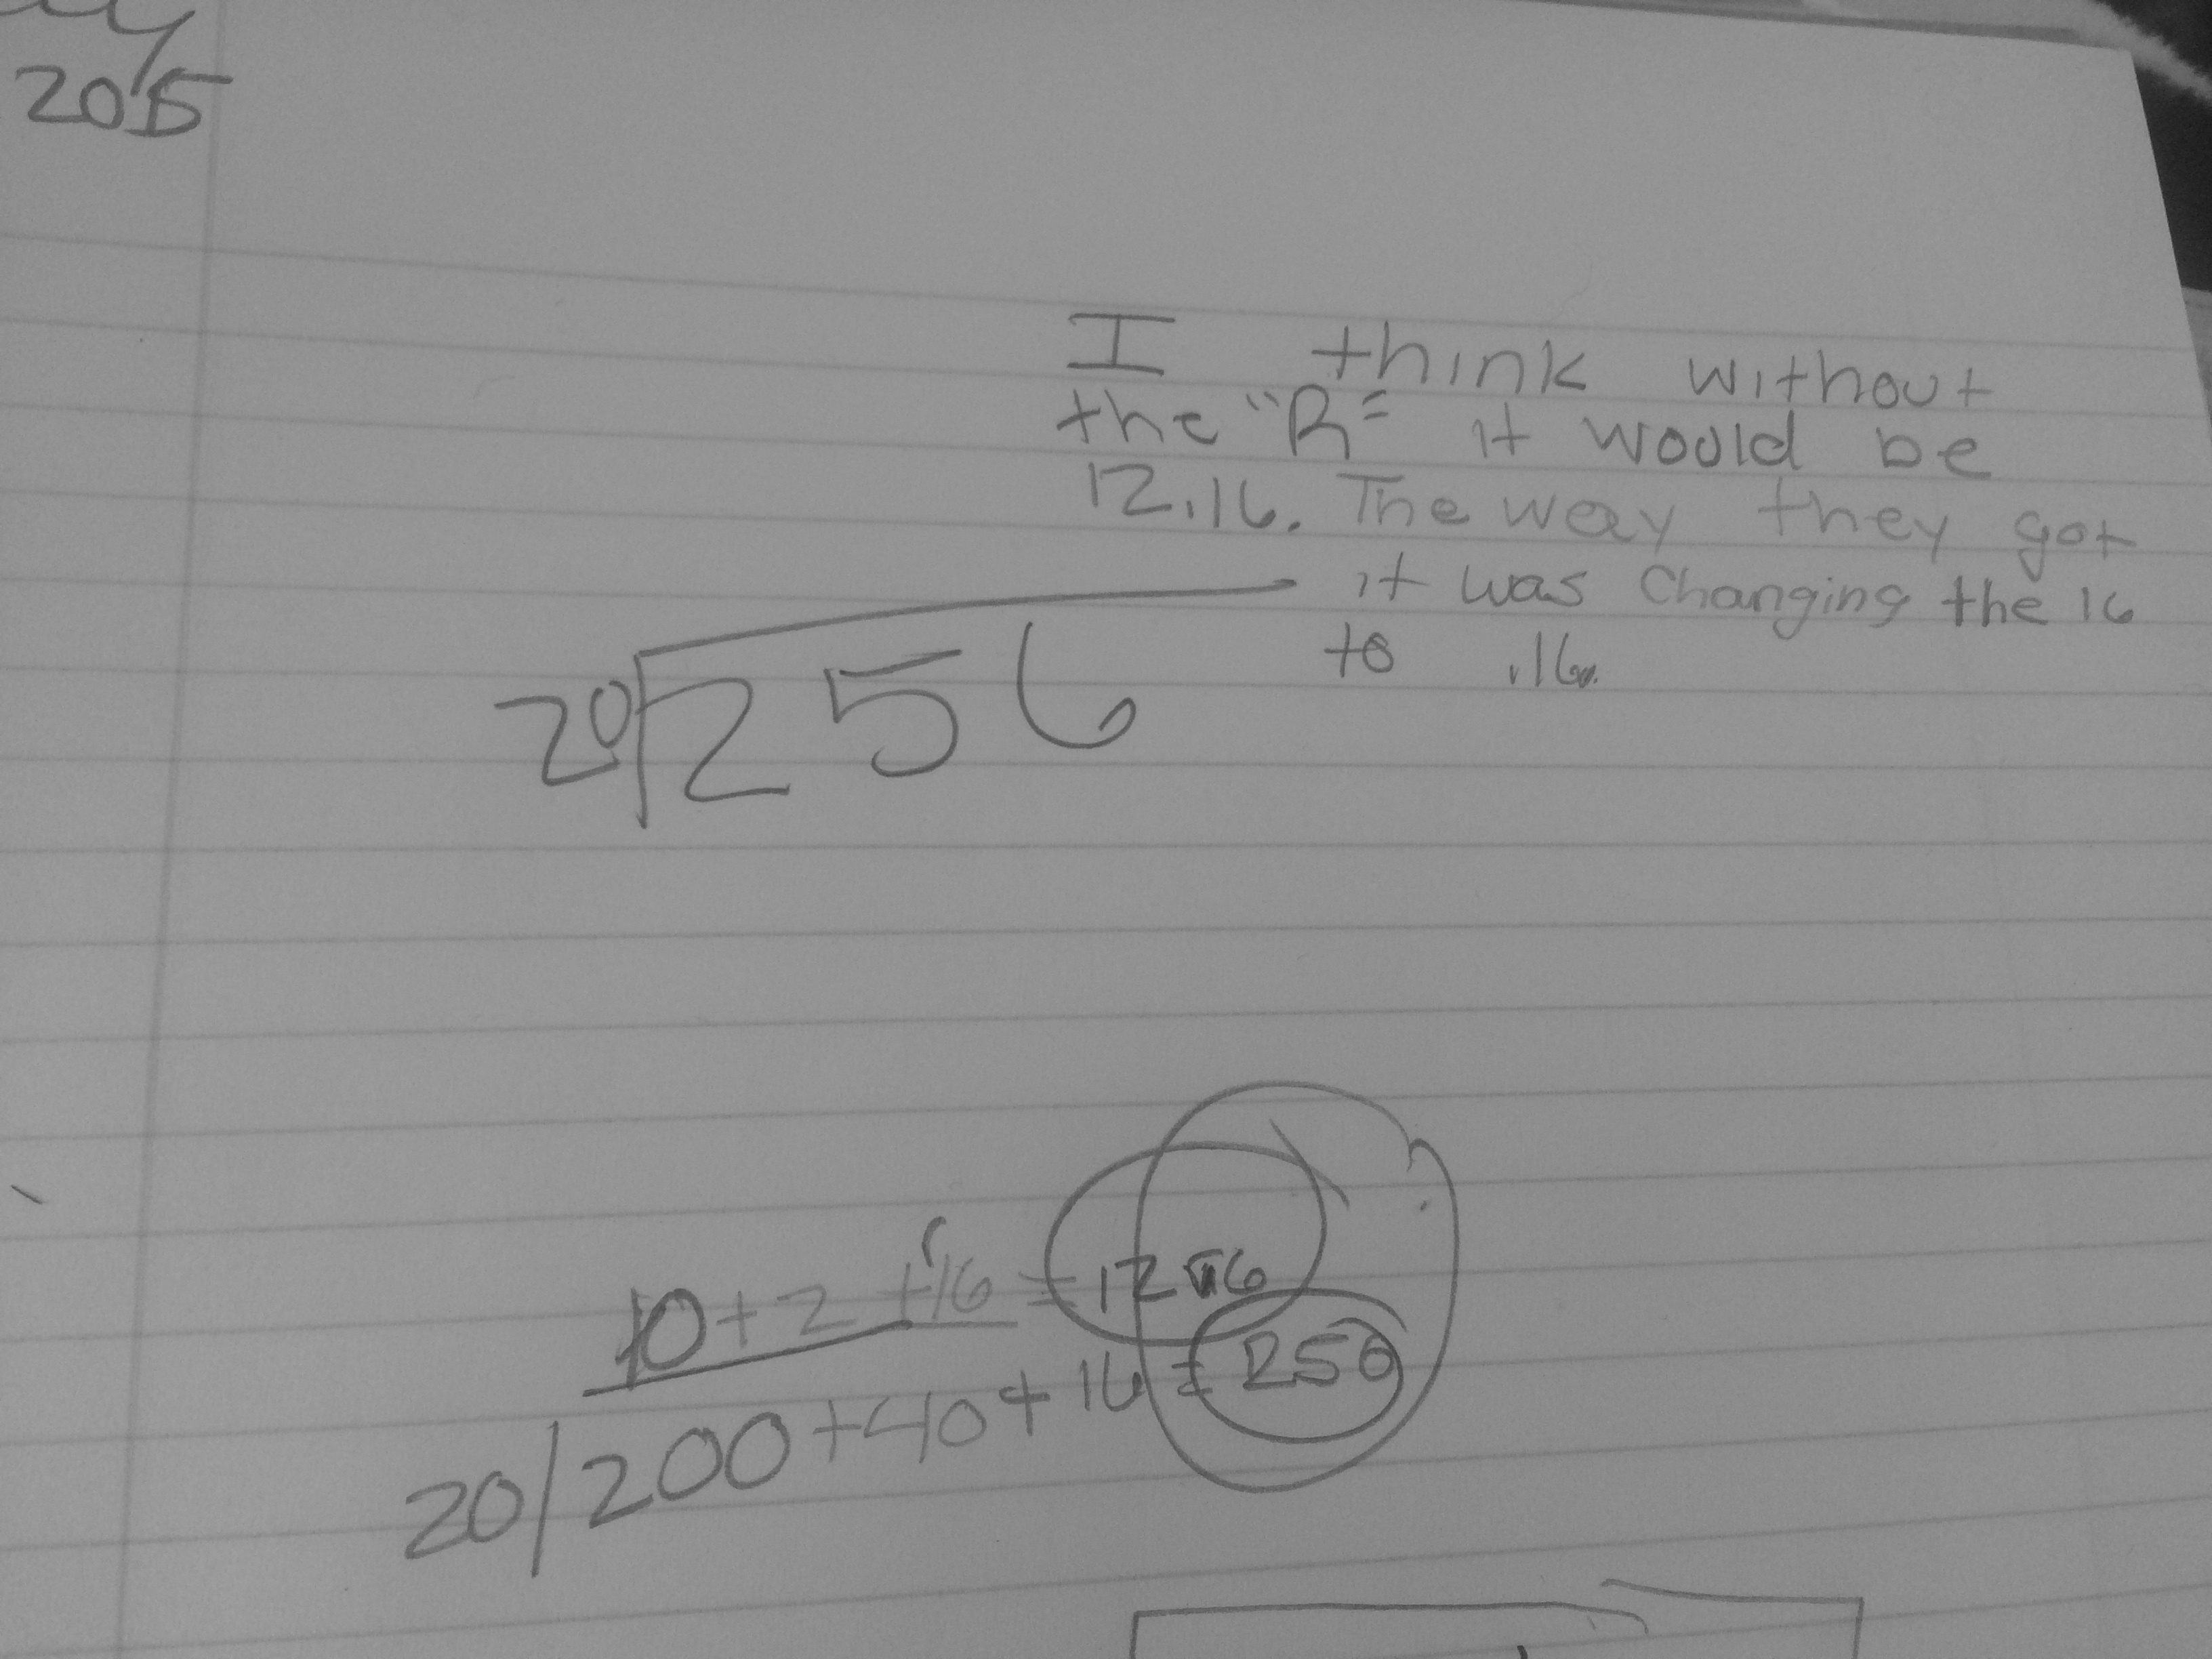 2015
I think without
the "R" it would be
12.16. The way they got
it was changing the 16
to .16.
20 256
10+2+r16 = 12
20/200+40+16 = 256